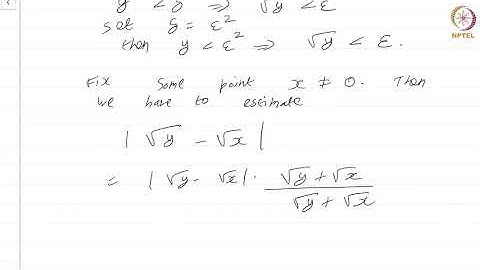 y < δ ⟹ √y < ε
set δ = ε²
then y < ε² ⟹ √y < ε.
NPTEL
Fix some point x ≠ 0. Then
we have to estimate
| √y - √x |
= | √y - √x | · (√y + √x) / (√y + √x)